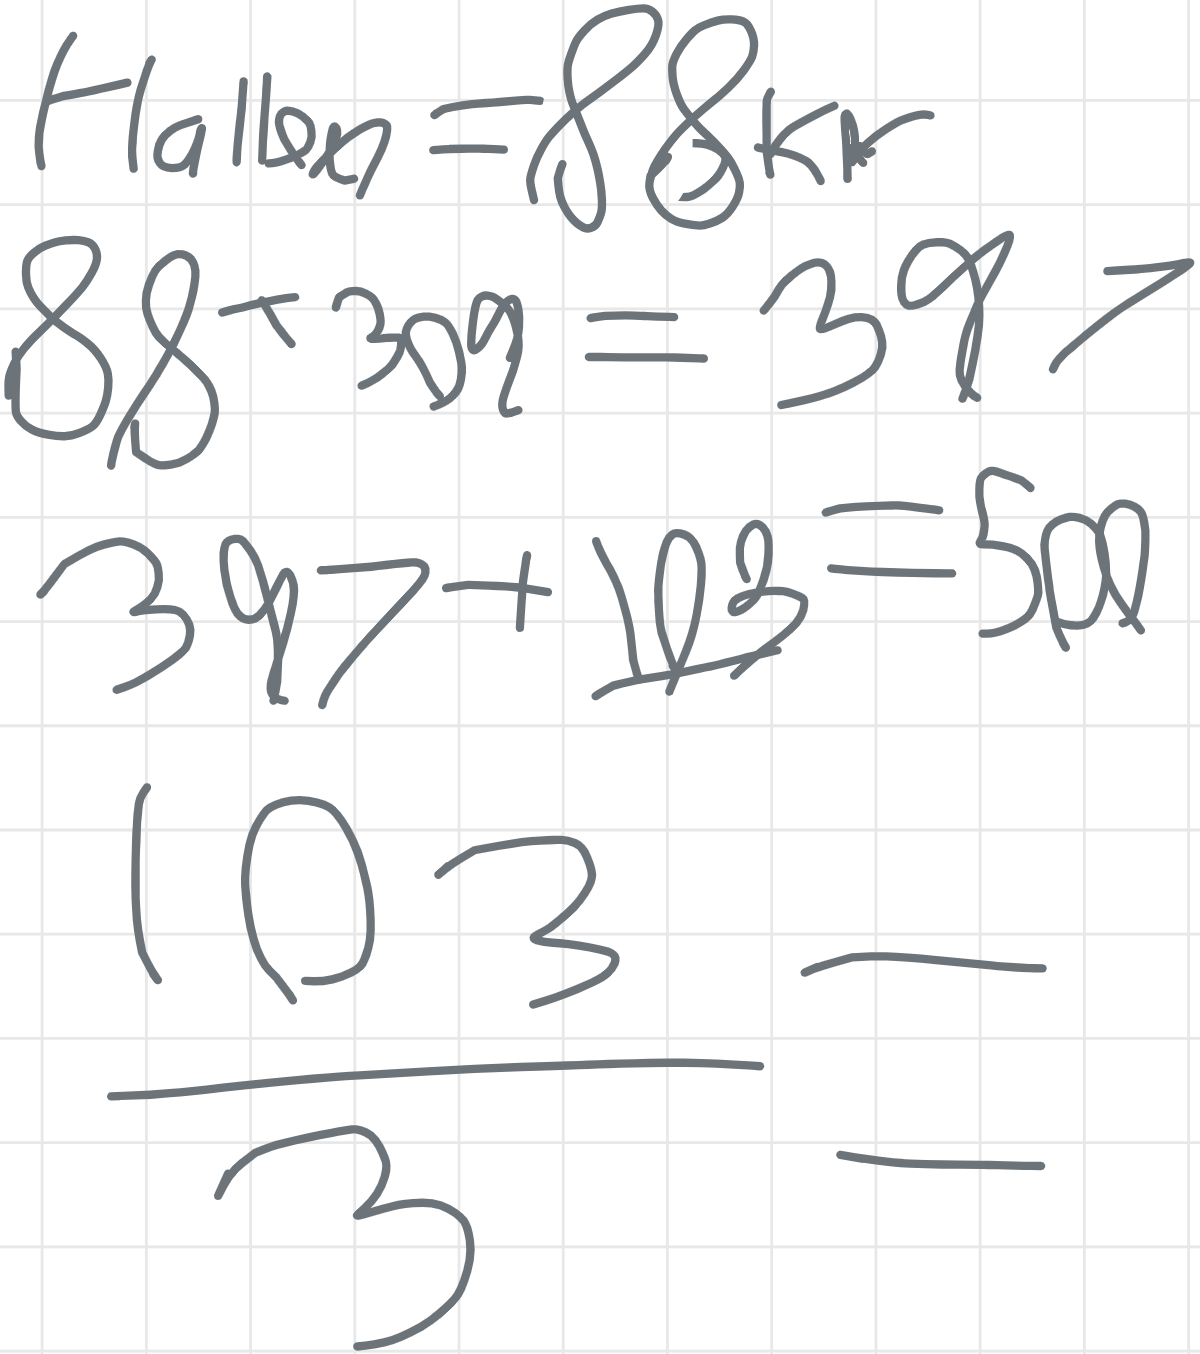 Hallen = 88 kr
88 + 309 = 397
397 + 103 = 500
103
―― =
3